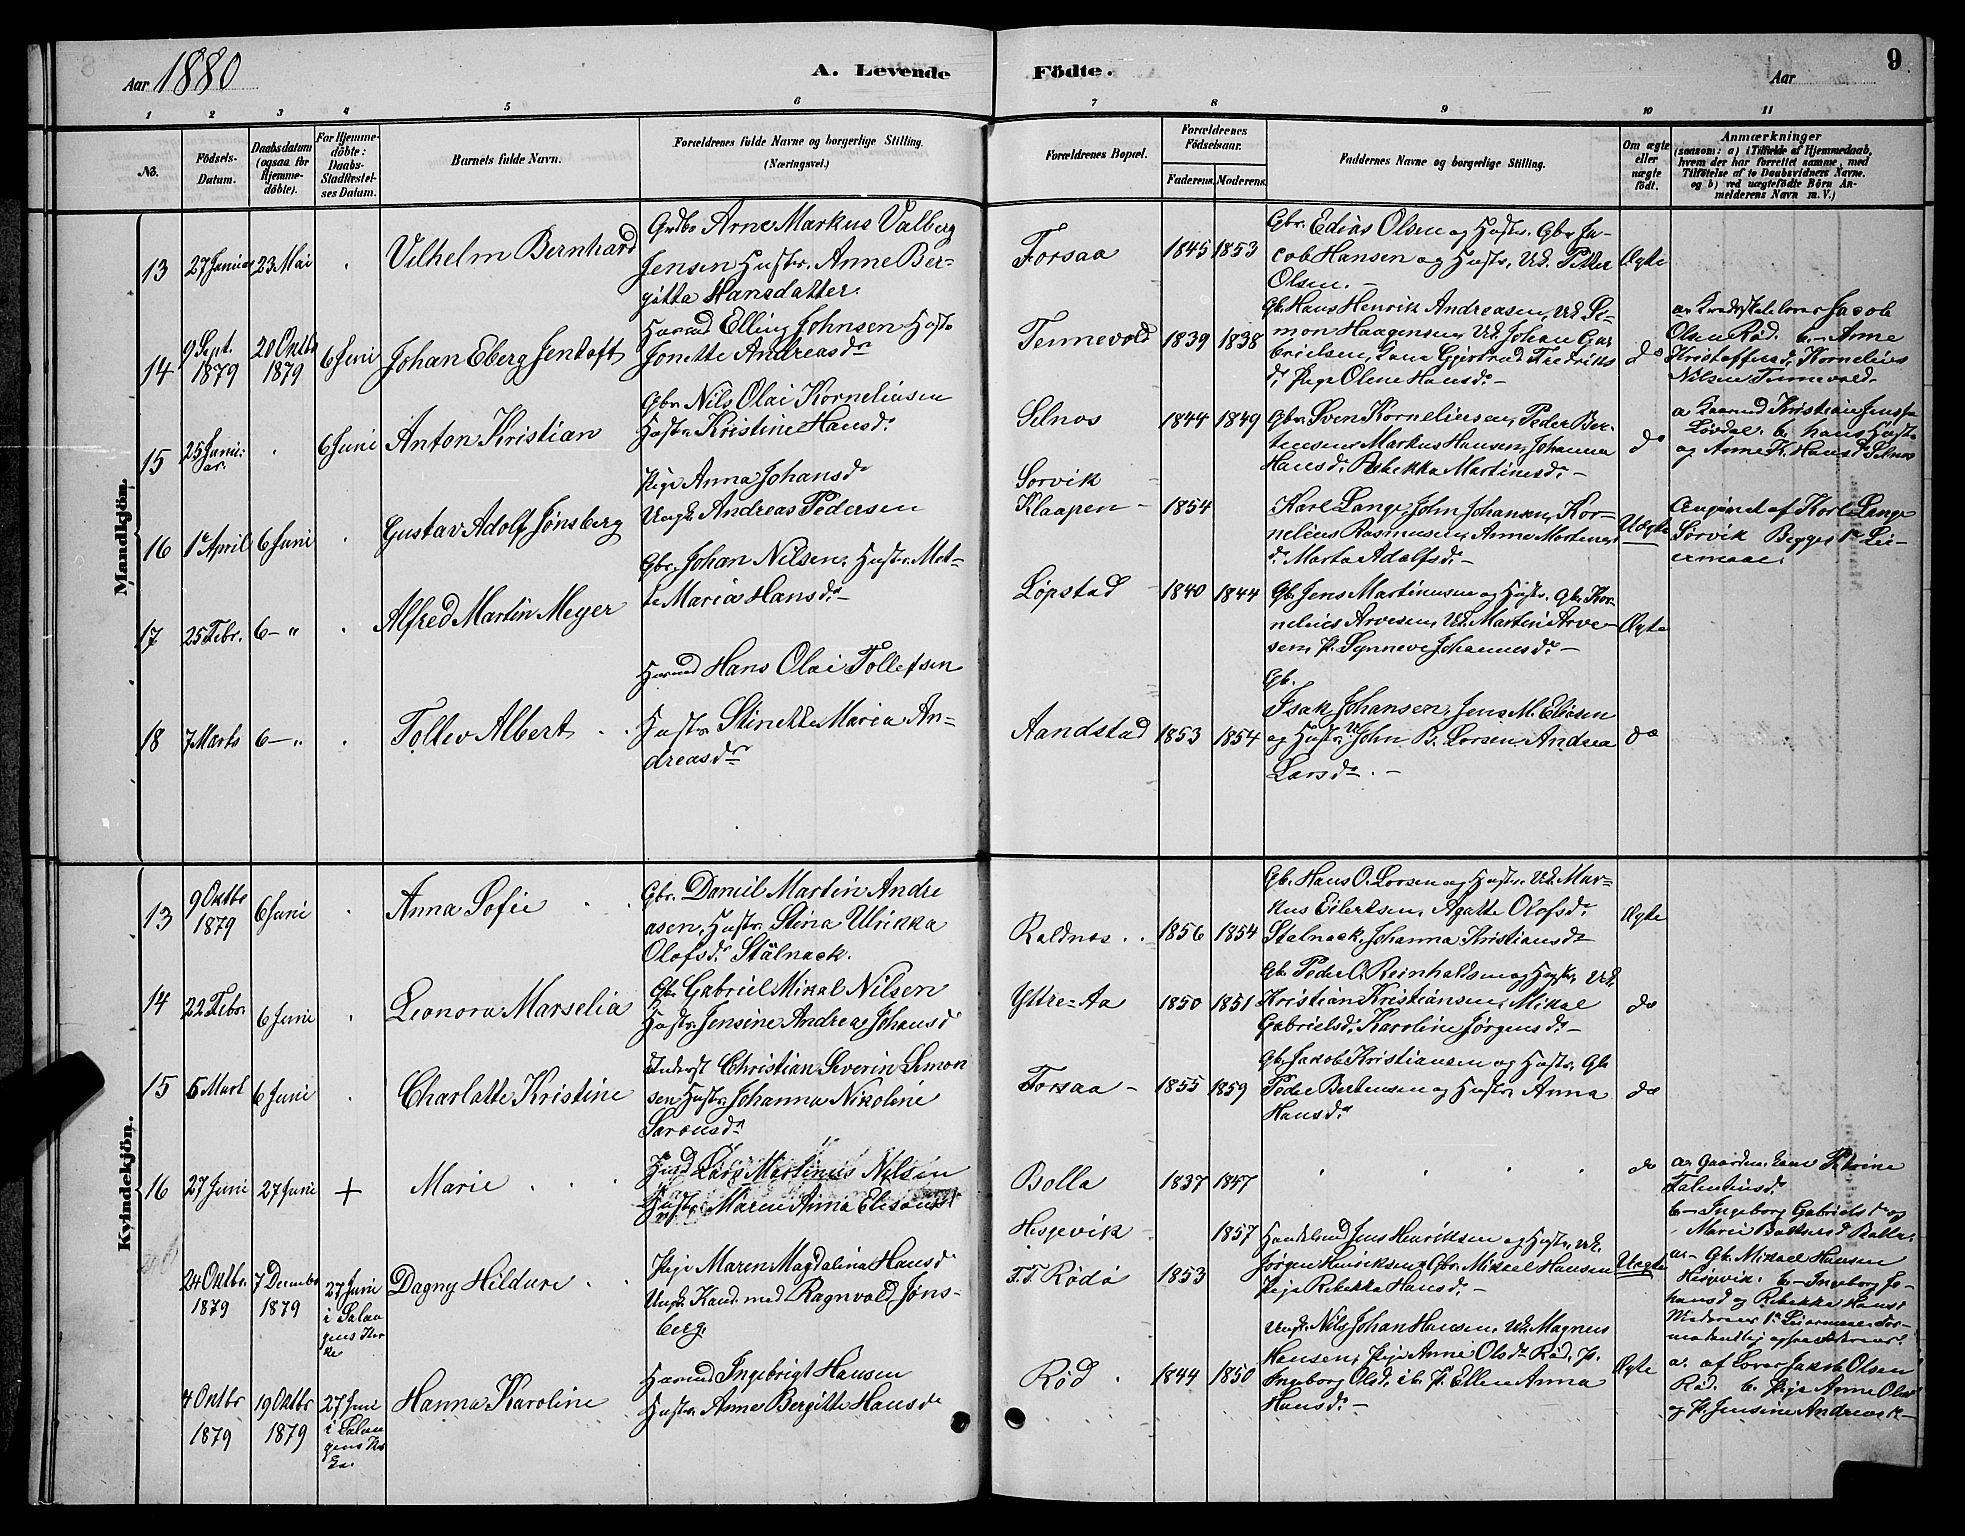 Aar 1880
A. Levende Födte.
Aar
9
1 2 3 4 5 6 7 8 9 10 11
No.
Födsels-
Datum.
Daabsdatum
(ogsaa for
Hjemme-
döbte).
For Hjemme-
döbte:
Daabs-
Stadfæstel-
ses Datum.
Barnets fulde Navn.
Forældrenes fulde Navne og borgerlige Stilling.
(Næringsvei.)
Forældrenes Bopæl.
Forældrenes
Födselsaar.
Faderens. Moderens.
Faddernes Navne og borgerlige Stilling.
Om ægte
eller
uægte
födt.
Anmærkninger
(saasom: a) i Tilfælde af Hjemmedaab,
hvem der har forrettet samme, med
Tilföielse af to Daabsvidners Navne.
og b) ved uægtefödte Börn An-
melderens Navn m. V.)
Mandkjön.
13 27 Januar 23 Mai
Vilhelm Bernhard
Grdbr Arne Markus Valberg
Jensen Hustr. Anne Ber-
gitta Hansdatter.
Forsaa
1845 1853
Gbr. Edias Olsen og Hustr. Gbr. Ja-
cob Hansen og Hustr. Uk. Petter
Olsen. -
Ægte
14 9 Sept. 1879
20 Oktbr 1879
6 Juni
Johan Eberg Jentoft
Huusmd Elling Johnsen Hustr
Jonette Andreasdr
Tennevold
1839 1838
Gb. Hans Henrik Andreasen, Uk. Si-
mon Haagensen, Uk. Johan Ga-
brielsen, Lava Gjertrud Fredriks
dr Pige Olene Hansdr -
do
Jacob
Olsen Röd. b- Anne
Kristoffersd, Kornelius
Nilsen Tennevold.
15 25 Janu-
ar.
6 Juni
Anton Kristian
Gbr. Nils Olai Korneliusen
Hustr. Kristine Hansdr
Selnes
1844 1849
Gbr. Sven Korneliusen, Peder Ber-
tensen Markus Hansen, Johanna
Hansdr Rebekka Martinusdr -
do
a Gaarmd Kristian Jenssen
Løvdal b. hans Hustr.
og Anne K. Hansd Selnes
16 1e April 6 Juni
Gustav Adolf Jønsberg
Pige Anna Johansdr
Ungk. Andreas Pedersen
Sørvik
Klaapen -
1854
Karl Lange, John Johansen, Kor-
nelius Rasmusen, Anne Martines
dr Marta Adolfsdr -
Uægte
Angivet af Karl Lange
Sörvik Begges 1ste Lei-
ermaal.
17 25 Febr. 6 - "
Alfred Martin Meyer
Gbr. Johan Nilsen, Hustr. Met-
te Maria Hansdr -
Løpstad
1840 1844
Gb. Jens Martinusen og Hustr. Gb. Kor-
nelius Arvesen, Uk. Martin Arve-
sen, P. Synneve Johannesdr -
Ægte
18 7 Marts 6 - "
Tollev Albert
Huusmd Hans Olai Tollefsen
Hustr Stinette Maria An-
dreasdr
Aandstad
1853 1854
Gb.
Isak Johansen, Jens M. Eliasen
og Hustr. Uk John B. Larsen Andrea
Larsdr. -
do
Kvindekjön.
13 9 Oktbr 1879
6 Juni
Anna Sofie
Gbr. Daniel Martin Andre
asen, Hustr. Stina Ulrikka
Olofsdr Stålnack.
Raldnes
1856 1854
Gb. Hans O. Larsen og Hustr. Uk. Mar-
kus Eilertsen, Agatte Olofsdr
Stalnack, Johanna Kristiansdr
Ægte
14 22 Febr. 6 Juni
Leonora Marselia
Gb. Gabriel Mikal Nilsen
Hustr. Jensine Andrea Johansd
Yttre-Aa
1850 1851
Gb. Peder O. Reinholdsen og Hustr. Uk.
Kristian Kristiansen, Mikal
Gabrielsdr Karoline Jørgensdr -
do
15 5 Mart 6 Juni
Charlotte Kristine
Inderst Christian Severin Simon
sen Hustr. Johanna Nikoline
Sørensdr
Forsaa -
1855 1859
Gb. Jakob Kristiansen og Hustr. Gb.
Peder Bertensen og Hustr. Anna
Hansdr
do
16 27 Juni 27 Juni +
Marie
Husmd Lars Martinus Nilsen
Hustr. Maren Anna Eliseusd
Bolla
1837 1847
do
Petrine
Falentinsd.
b- Ingeborg Gabrielsdr og
Marie Baltsersd Bolla.
24 Oktbr. 1879
7 December 1879
27 Juni
i Salan
gens Kir
ke
Dagny Hildure
Pige Maren Magdalina Hansd
Ungk. Kand. med Ragnvald Jøns-
berg.
Hesjevik
T.T. Rödö
1853
1857
Handelsmd Jens Henriksen og Hustr. Uk.
Jørgen Henriksen, Gbr. Mikael Hansen
Pige Rebekka Hansdr -
Uægte
a- Gb. Mikael Hansen
Hesjevik. b- Ingeborg Jo-
hansd og Rebekka Hansd
Moderens 1ste Leiermaal for-
modentlig ogsaa Faderens.
4 Oktbr 1879
19 Oktbr 1879
27 Juni
i Salan
gens Kir
ke.
Hanna Karoline
Huusmd Ingebrigt Hansen
Hustr. Anne Bergitte Hansdr
Röd
1844 1850
Ungk. Nils Johan Hansen, Uk. Magnus
Hansen, Pige Anne Olsdr Röd, P.
Ingeborg Olsd. ib. P. Ellen Anna
Hansdr -
Ægte
a. af Lærer Jakob Olsen
Röd. b. Pige Anne Olsd
og P. Jensine Andreas d -